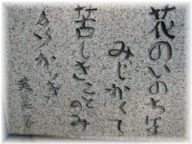 花のいのちは
みじかくて
苦しきことのみ
多かりき
芙美子